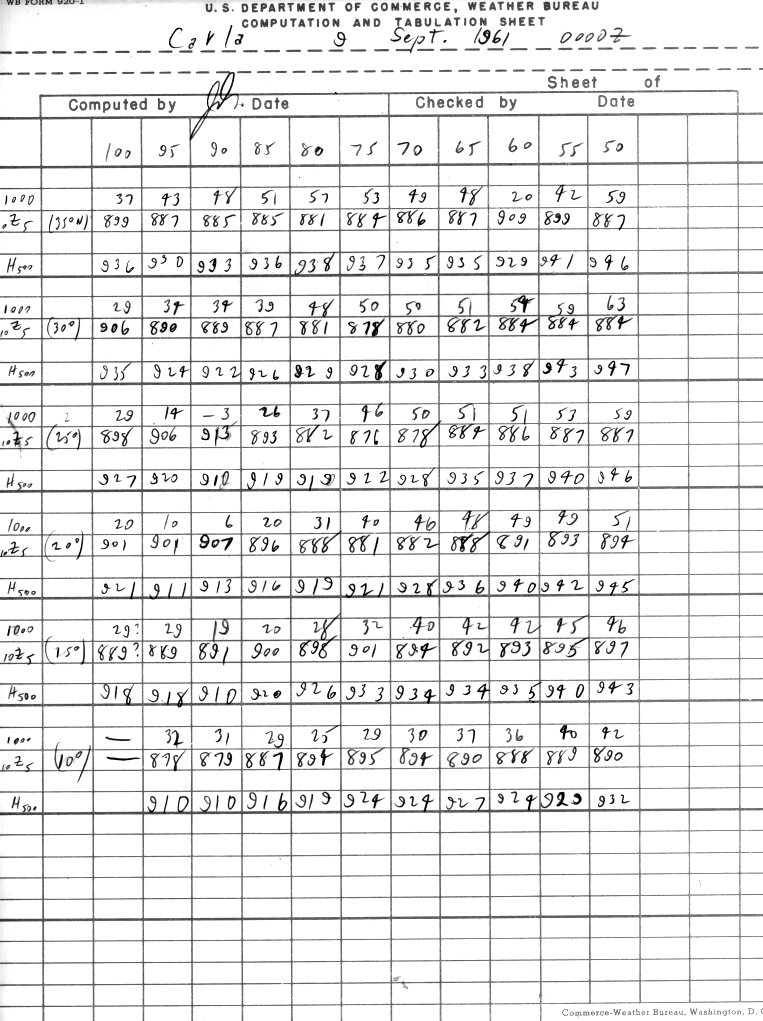 WB FORM 920-1
U. S. DEPARTMENT OF COMMERCE, WEATHER BUREAU
COMPUTATION AND TABULATION SHEET
Carla 9 Sept. 1961 0000Z
Sheet of
Computed by Date Checked by Date
100 95 90 85 80 75 70 65 60 55 50
1000 37 43 48 51 57 53 49 48 20 42 59
10Z5 (35°N) 899 887 885 885 881 884 886 887 909 899 887
H500 936 930 933 936 938 937 935 935 929 941 946
1000 29 34 34 39 48 50 50 51 54 59 63
10Z5 (30°) 906 890 889 887 881 878 880 882 884 884 884
H500 935 924 922 926 929 928 930 933 938 943 947
1000 2 29 14 -3 26 37 46 50 51 51 53 59
10Z5 (25°) 898 906 913 893 882 876 878 884 886 887 887
H500 927 920 910 919 919 922 928 935 937 940 946
1000 20 10 6 20 31 40 46 48 49 49 51
10Z5 (20°) 901 901 907 896 888 881 882 888 891 893 894
H500 921 911 913 916 919 921 928 936 940 942 945
1000 29? 29 19 20 28 32 40 42 42 45 46
10Z5 (15°) 889? 889 891 900 898 901 894 892 893 895 897
H500 918 918 910 920 926 933 934 934 935 940 943
1000 — 32 31 29 25 29 30 37 36 40 42
10Z5 (10°) — 878 879 887 894 895 894 890 888 889 890
H500 910 910 916 919 924 924 927 924 929 932
Commerce-Weather Bureau, Washington, D. C